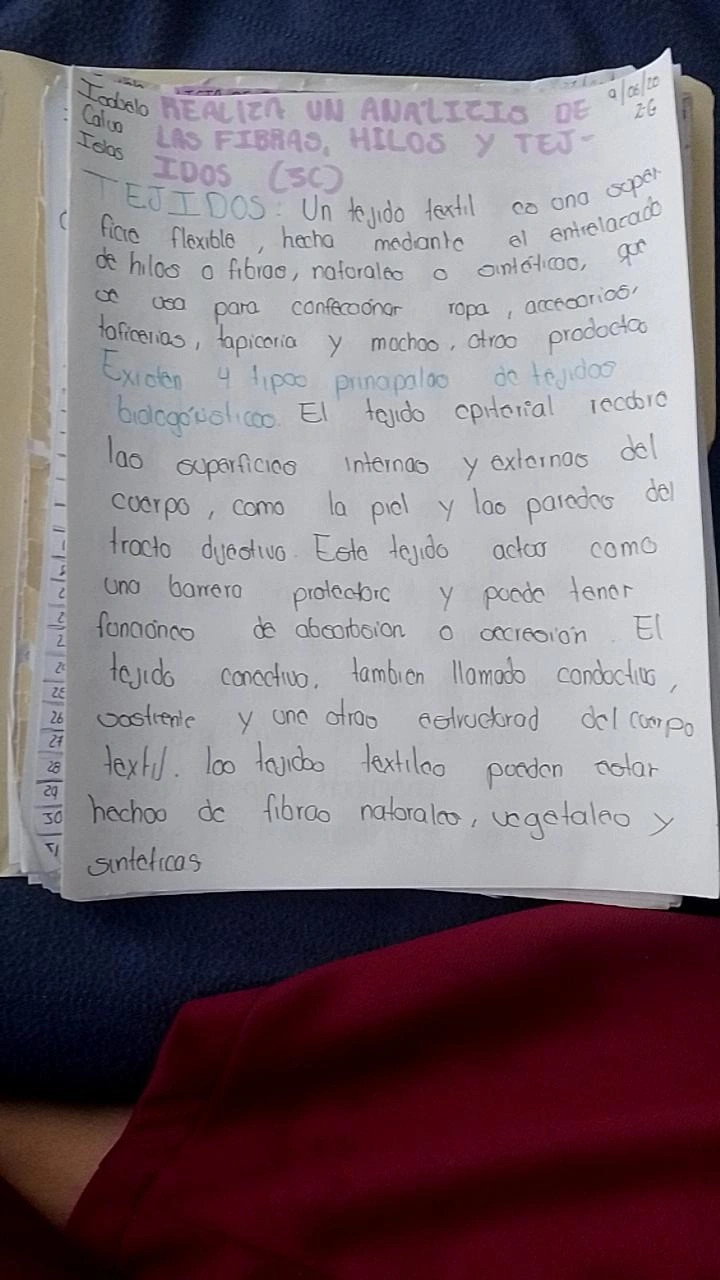 Isabela
Calvo
Islas
9/06/20
2G
REALIZA UN ANALICIS DE
LAS FIBRAS, HILOS Y TEJ-
IDOS (SC)
TEJIDOS: Un tejido textil es una super
ficie flexible, hecha mediante el entrelazado
de hilos o fibras, naturales o sintéticas, que
se usa para confeccionar ropa, accesorios,
tapiceria y muchos, otros productos
Existen 4 tipos principales de tejidos
El tejido epiterial recubre
las superficies internas y externas del
cuerpo, como la piel y las paredes del
tracto dijestivo. Este tejido actua como
una barrera protectora y puede tener
funciones de absorbsion o secresion. El
tejido conectivo, tambien llamado conductivo,
sostiene y une otras estructuras del cuerpo
textil. los tejidos textiles pueden estar
hechos de fibras naturales, vegetales y
sintéticas
25
26
27
28
29
30
31